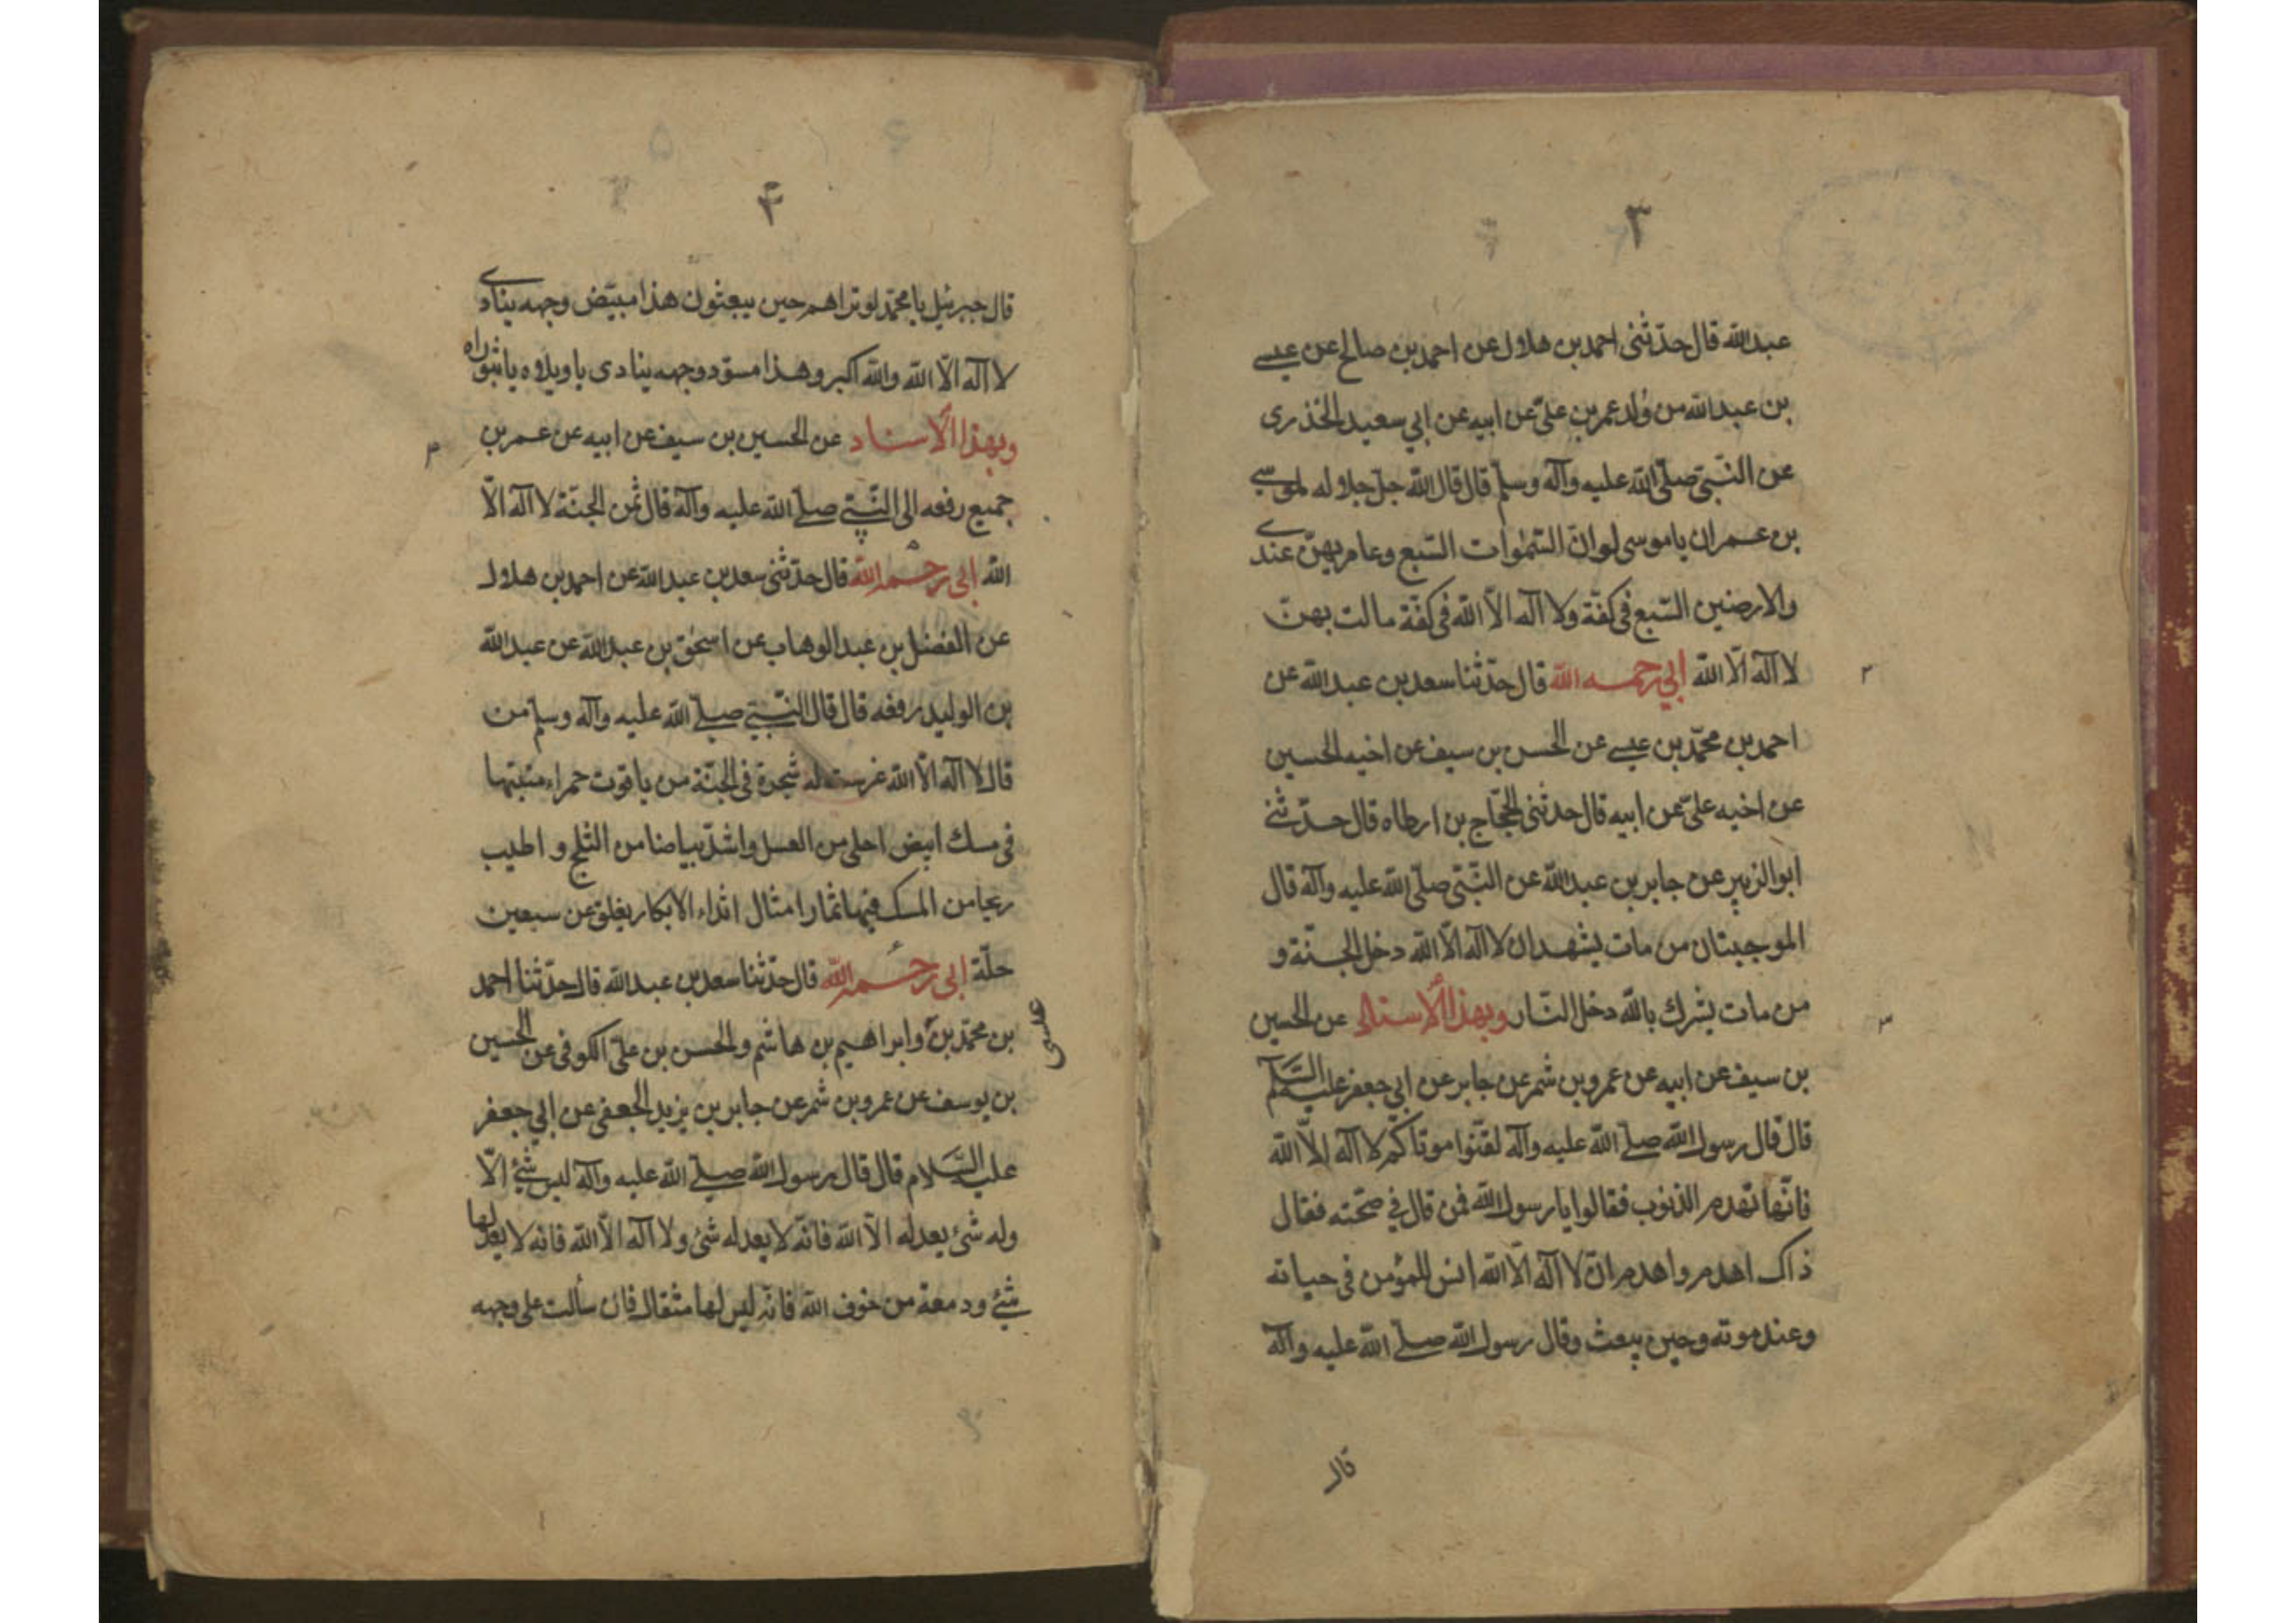 ٣
عبد الله قال حدّثنى احمد بن هلال عن احمد بن صالح عن عيسى
بن عبد الله من ولد عمر بن علىّ عن ابيه عن ابي سعيد الخذرى
عن النّبىّ صلّى الله عليه وآله وسلّم قال قال الله جلّ جلاله لموسى
بن عمران يا موسى لو انّ السّمٰوات السّبع وعامريهنّ عندى
والارضين السّبع فى كفّة ولا آله الّا الله فى كفّة مالت بهنّ
لا آله الّا الله ابي رحمه الله قال حدّثنا سعد بن عبد الله عن
٢
احمد بن محمّد بن عيسى عن الحسن بن سيف عن اخيه الحسين
عن اخيه علىّ عن ابيه قال حدثنى الحجّاج بن ارطاه قال حدّثنى
ابو الزبير عن جابر بن عبد الله عن النّبىّ صلّى الله عليه وآله قال
الموجبتان من مات يشهد ان لا آله الّا الله دخل الجنّة و
من مات يشرك بالله دخل النّار وبهذا الأسناد عن الحسين
٣
بن سيف عن ابيه عن عمرو بن شمر عن جابر عن ابي جعفر عليه السّلم
قال قال رسول الله صلّى الله عليه وآله لقّنوا موتاكم لا آله الّا الله
فانّها تهدم الذنوب فقالوا يا رسول الله فمن قال في صحّته فقال
ذاك اهدم واهدم انّ لا آله الّا الله انس للمؤمن فى حياته
وعند موته وحين يبعث وقال رسول الله صلّى الله عليه وآله
قال
۴
قال جبرئيل يا محمّد لو تراهم حين يبعثون هذا مبيّض وجهه ينادى
لا آله الّا الله والله اكبر وهذا مسوّد وجهه ينادى يا ويلاه يا ثبوراه
وبهذا الأسناد عن الحسين بن سيف عن ابيه عن عمر بن
۴
جميع رفعه الى النّبىّ صلّى الله عليه وآله قال ثمن الجنّة لا آله الّا
الله ابى رحمه الله قال حدّثنى سعد بن عبد الله عن احمد بن هلال
عن الفضل بن عبد الوهاب عن اسحٰق بن عبد الله عن عبد الله
بن الوليد رفعه قال قال النّبىّ صلّى الله عليه وآله وسلّم من
قال لا آله الّا الله غرست له شجرة فى الجنّة من ياقوت حمراء منبتها
فى مسك ابيض احلى من العسل واشدّ بياضا من الثلج و اطيب
ريحا من المسك فيها ثمار امثال اثداء الابكار يغلق عن سبعين
حلّة ابى رحمه الله قال حدّثنا سعد بن عبد الله قال حدّثنا احمد
بن محمّد بن وابراهيم بن هاشم والحسن بن علىّ الكوفى عن الحسين
عيسى
بن يوسف عن عمرو بن شمر عن جابر بن يزيد الجعفى عن ابي جعفر
عليه السّلام قال قال رسول الله صلّى الله عليه وآله ليس شئ الّا
وله شئ يعدله الّا الله فانّه لا يعدله شئ ولا آله الّا الله فانه لا يعدلها
شئ ودمعة من خوف الله فانّه ليس لها مثقال فان سألت على وجهه